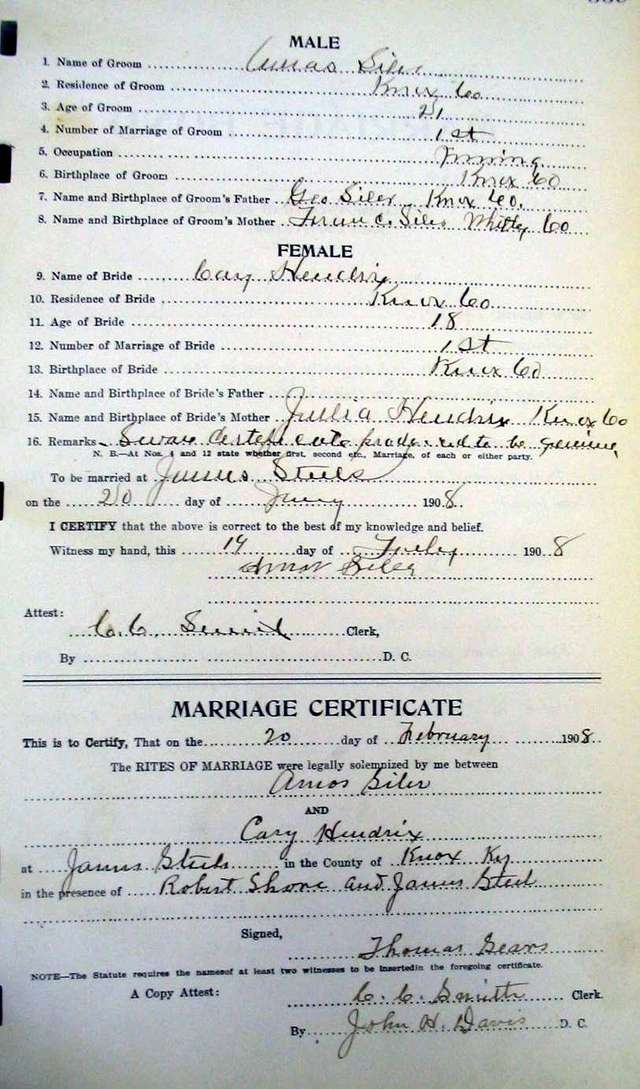 MALE
1. Name of Groom Amos Siler
2. Residence of Groom Knox Co
3. Age of Groom 21
4. Number of Marriage of Groom 1st
5. Occupation
6. Birthplace of Groom Knox Co
7. Name and Birthplace of Groom's Father Geo Siler Knox Co.
8. Name and Birthplace of Groom's Mother Siler Whitly Co
FEMALE
9. Name of Bride Cary Hendrix
10. Residence of Bride Knox Co
11. Age of Bride 18
12. Number of Marriage of Bride 1st
13. Birthplace of Bride Knox Co
14. Name and Birthplace of Bride's Father
15. Name and Birthplace of Bride's Mother Jullia Hendrix Knox Co
16. Remarks to be genuine
N. B.—At Nos. 4 and 12 state whether first, second etc., Marriage, of each or either party.
To be married at James Steels
on the 20 day of 1908.
I CERTIFY that the above is correct to the best of my knowledge and belief.
Witness my hand, this 19 day of 1908
Amos Siler
Attest:
C. C. Smith Clerk,
By D. C.
MARRIAGE CERTIFICATE
This is to Certify, That on the 20 day of February 1908.
The RITES OF MARRIAGE were legally solemnized by me between
Amos Siler
AND
Cary Hendrix
at James Steels in the County of Knox Ky
in the presence of Robert Shore and James Steel
Signed,
Thomas Gears
NOTE—The Statute requires the namesof at least two witnesses to be insertedin the foregoing certificate.
A Copy Attest: C. C. Smith Clerk.
By John H. Davis D. C.